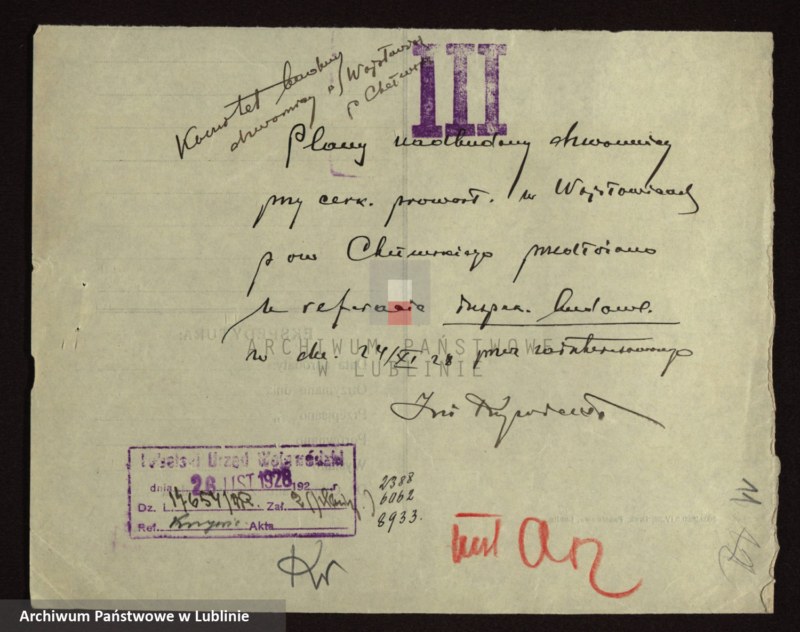 III
Komitet budowy
dzwonnicy w Wojsławicach
p Chełmski
Plany nadbudowy dzwonnicy
przy cerk. prawosł. w Wojsławicach
pow Chełmskiego przedłożono
w referacie Inspek. budowl.
w dn. 24/XI 28 przez zainteresowanego
ARCHIWUM PAŃSTWOWE
W LUBLINIE
Lubelski Urząd Wojewódzki
dnia 26 LIST 1928 192 r
Dz. L. 17654/ Zał. 2 (plany)
Ref. Akta
2388
6062
8933.
Kr
Archiwum Państwowe w Lublinie